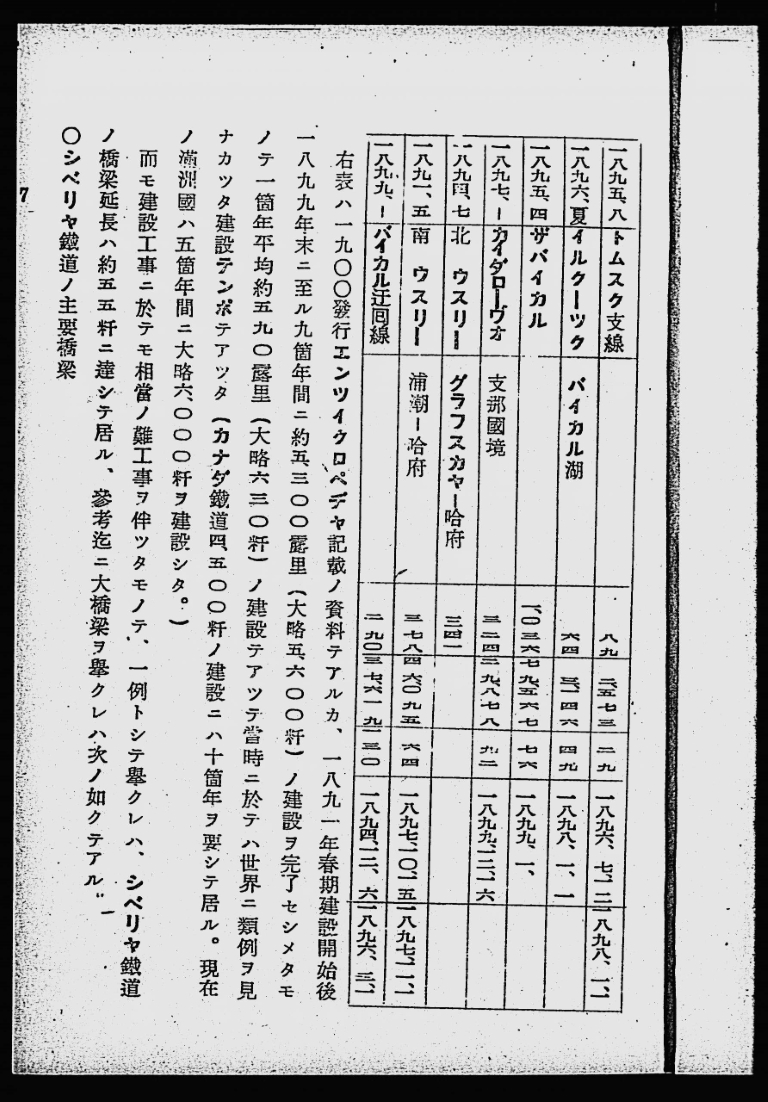 一八九五、八 トムスク支線 八九 二、五七三 二九 一八九六、七、二二 一八九八、一、一
一八九六、夏 イルクーツク バイカル湖 六四 三、一四六 四九 一八九八、一、一
一八九五、四 ザバイカル 一、〇三六 七九、五六七 七六 一八九九、一、
一八九七、一 カイダローヴォ 支那國境 三二四 三一、九八七八 九二 一八九九、一二、六
一八九四、七 北 ウスリー グラフスカヤー哈府 三四一
一八九一、五 南 ウスリー 浦潮ー哈府 三七八 四六、〇九五 六四 一八九七、一〇、五 一八九七、一、一
一八九九、一 バイカル迂回線 二九〇 三七、六一九 一三〇 一八九四、一二、六 一八九六、三、一
右表ハ一九〇〇發行エンツイクロペヂヤ記載ノ資料テアルカ、一八九一年春期建設開始後
一八九九年末ニ至ル九箇年間ニ約五、三〇〇露里(大略五、六〇〇粁)ノ建設ヲ完了セシメタモ
ノテ一箇年平均約五九〇露里(大略六三〇粁)ノ建設テアツテ當時ニ於テハ世界ニ類例ヲ見
ナカツタ建設テンポテアツタ(カナダ鐵道四、五〇〇粁ノ建設ニハ十箇年ヲ要シテ居ル。現在
ノ滿洲國ハ五箇年間ニ大略六、〇〇〇粁ヲ建設シタ。)
而モ建設工事ニ於テモ相當ノ難工事ヲ伴ツタモノテ、一例トシテ擧クレハ、シベリヤ鐵道
ノ橋梁延長ハ約五五粁ニ達シテ居ル、參考迄ニ大橋梁ヲ擧クレハ次ノ如クテアル"
〇シベリヤ鐵道ノ主要橋梁
7